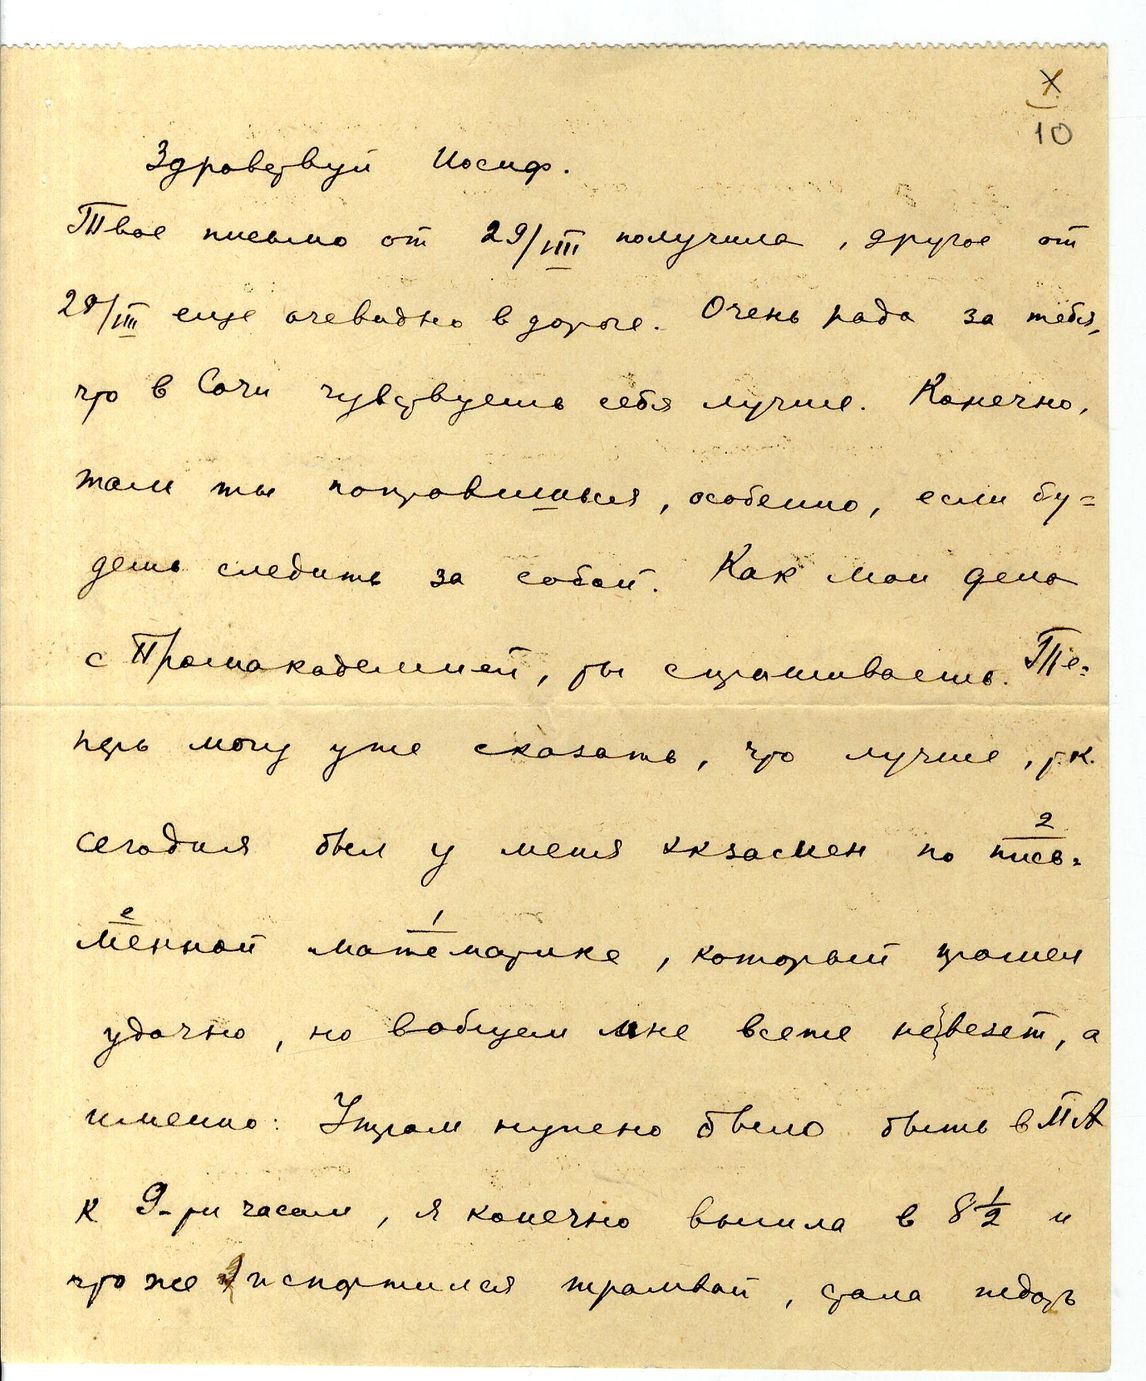 X
10
Здравствуй Иосиф.
Твое письмо от 29/VIII получила, другое от
28/VIII еще очевидно в дороге. Очень рада за тебя,
что в Сочи чувствуешь себя лучше. Конечно,
там ты поправишься, особенно, если бу=
дешь следить за собой. Как мои дела
с Промакадемией, ты спрашиваешь. Те=
перь могу уже сказать, что лучше, т.к.
2
сегодня был у меня экзамен по пись=
2 1
менной математике, который прошел
удачно, но вобщем мне всеже невезет, а
именно: Утром нужно было быть в ПА
к 9-ти часам, я конечно вышла в 8 1/2 и
что же испортился трамвай, стала ждать